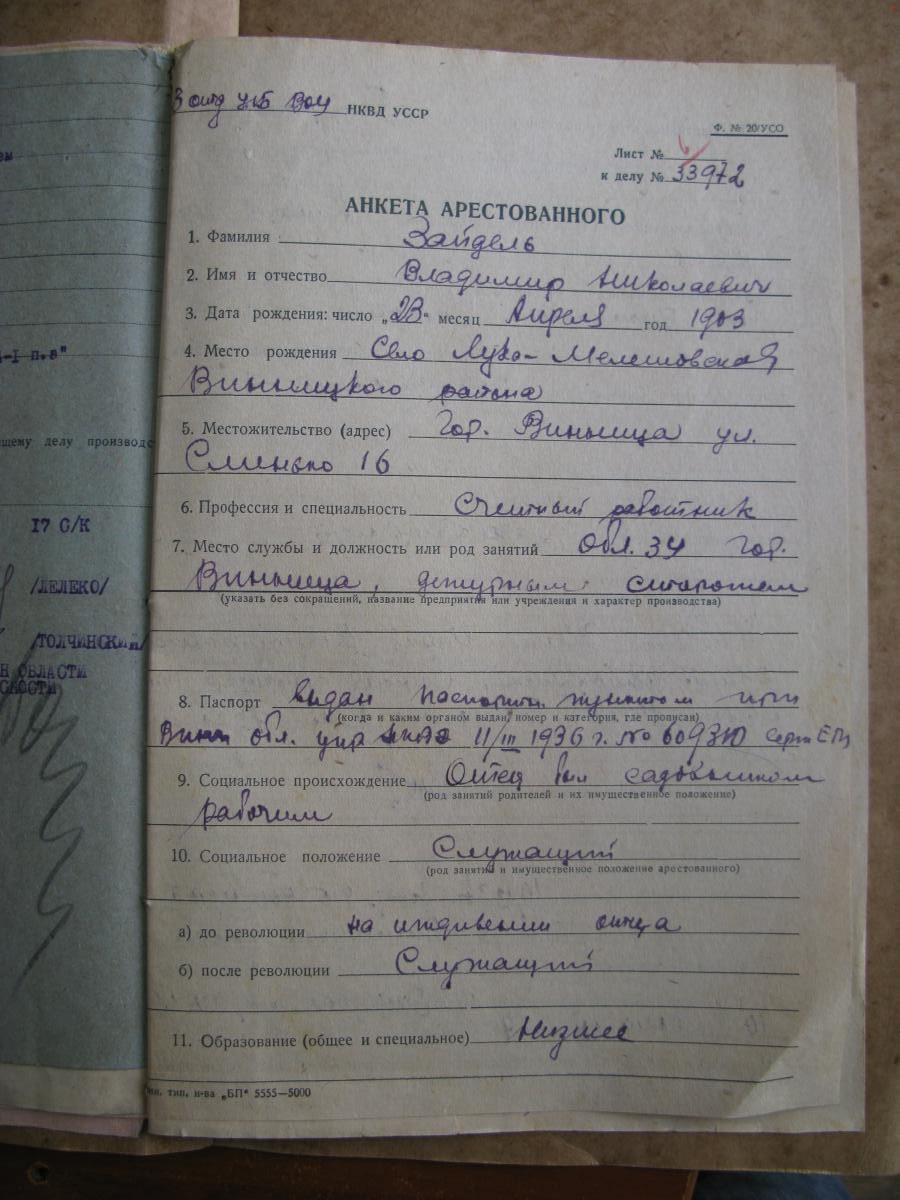 ем
-I п.8"
щему делу производс
17 С/К
/ЛЕЛЕКО/
/ТОЛЧИНСКИЙ/
Н ОБЛАСТИ
СНОСТИ
3 отд УГБ ВОУ НКВД УССР
Ф. № 20/УСО
Лист № 6
к делу № 33972
АНКЕТА АРЕСТОВАННОГО
1. Фамилия Зайдель
2. Имя и отчество Владимир Николаевич
3. Дата рождения: число „23“ месяц Апреля год 1903
4. Место рождения Село Лука-Мелешовская
Винницкого района
5. Местожительство (адрес) Гор. Винница ул.
16
6. Профессия и специальность Счетный работник
7. Место службы и должность или род занятий Обл. гор.
Винница, дежурным сторожем
(указать без сокращений, название предприятия или учреждения и характер производства)
8. Паспорт выдан паспортн. пунктом при
(когда и каким органом выдан, номер и категория, где прописан)
Винн обл. упр НКВД 11/III 1936 г. № Серия
9. Социальное происхождение Отец был садовником
(род занятий родителей и их имущественное положение)
рабочим
10. Социальное положение Служащий
(род занятий и имущественное положение арестованного)
а) до революции на иждивении отца
б) после революции Служащий
11. Образование (общее и специальное) Низшее
тип. н-ва „БП“ 5555—5000